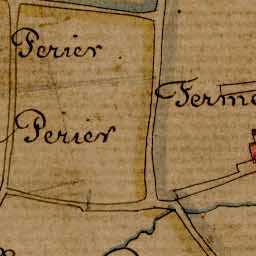 Perier
Ferme
Perier